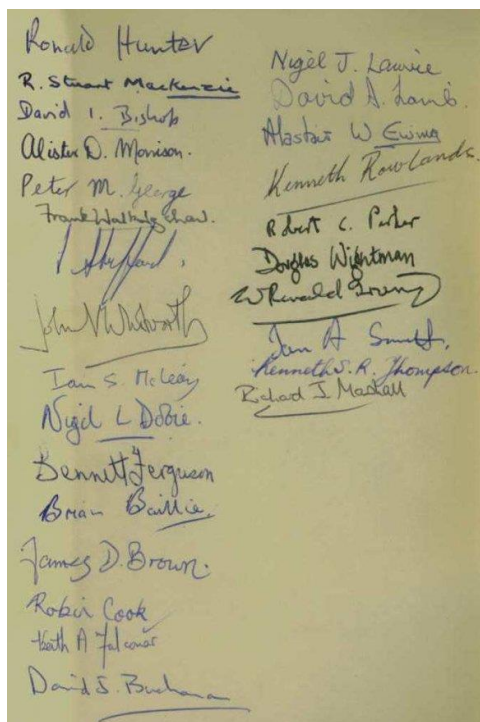 Ronald Hunter
R. Stuart Mackenzie
David I. Bishop
Alister D. Morrison.
Peter M. George
Frank Walkingshaw.
John Whitworth
Iain S. McLeay
Nigel L Dobie.
Bennett Ferguson
Brian Baillie.
James D. Brown.
Robin Cook
Keith A Falconer
David S. Buchanan
Nigel J. Lawrie
David A. Lamb.
Alastair W Ewing
Kenneth Rowlands.
Robert C. Parker
Douglas Wightman
W Ronald
Ian A Smith.
Kenneth J. R. Thompson.
Richard J. Maskell